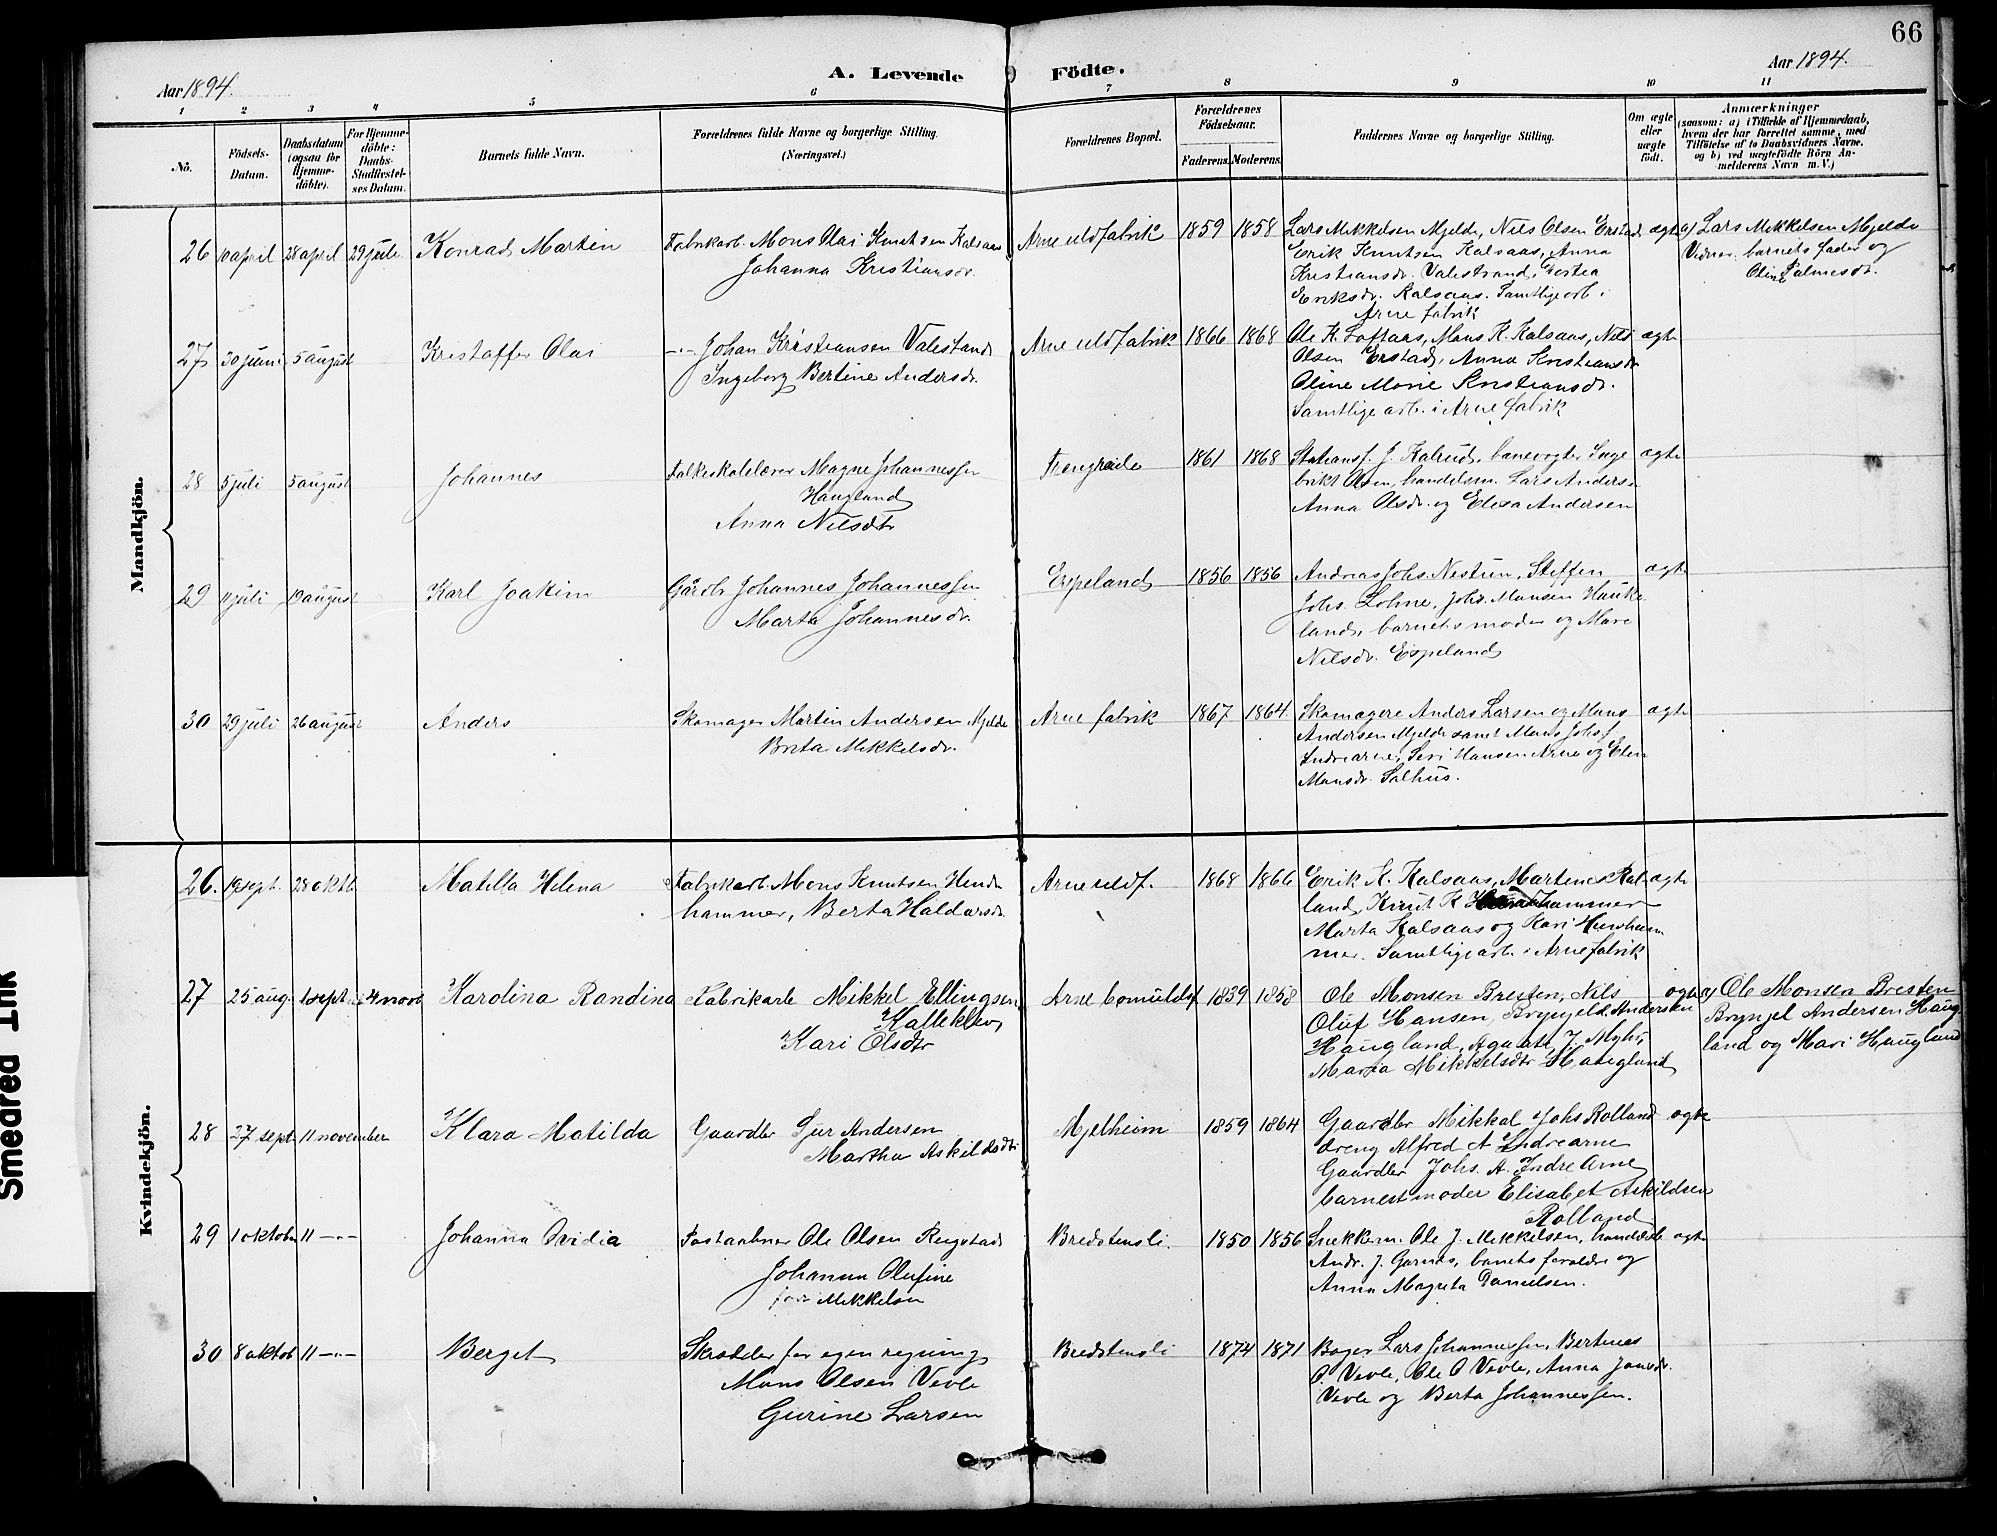 66
Aar 1894.
A. Levende Födte.
Aar 1894.
1 2 3 4 5 6 7 8 9 10 11
No.
Födsels-Datum.
Daabsdatum (ogsaa for Hjemmedöbte).
For Hjemmedöbte: Daabs-Stadfæstelses Datum.
Barnets fulde Navn.
Forældrenes fulde Navne og borgerlige Stilling.
(Næringsvei.)
Forældrenes Bopæl.
Forældrenes Födselsaar.
Faderens. Moderens.
Faddernes Navne og borgerlige Stilling.
Om ægte eller uægte födt.
Anmærkninger
(saasom: a) i Tilfælde af Hjemmedaab, hvem der har forrettet samme, med Tilföielse af to Daabsvidners Navne. og b) ved uægtefödte Börn Anmelderens Navn m. V.)
Mandkjön.
26 10 april 28 april 29 juli Konrad Martin Fabrikarb. Mons Olai Knutsen Kalsaas Arne uldfabrik 1859 1858 Lars Mikkelsen Mjelde, Nils Olsen Erstad, ægte a) Lars Mikkelsen Mjelde
Johanna Kristiansdr.
Erik Knutsen Kalsaas, Anna
Vidner barnets fader og
Kristiansdr. Valestrand,
Oline Palmesdr.
Eriksdr. Kalsaas. Samtlige arb. i
Arne fabrik
27 30 juni 5 august Kristoffer Olai -"- Johan Kristiansen Valestrand Arne uldfabrik 1866 1868 Ole K. Loftaas, Mons K. Kalsaas, Nils ægte
Ingeborg Bertine Andersdr.
Olsen Erstad, Anna Kristiansdr
Oline Marie Kristiansdr.
Samtlige arb. i Arne fabrik
28 5 juli 5 august Johannes Folkeskolelærer Magne Johannessen Trengreide 1861 1868 Stationsf. J. Kalrud, banevogter Inge ægte
Haugland
brikt Olsen, handelsm. Lars Andersen
Anna Nilsdtr
Anna Olsdr. og Elisa Andersen
29 11 juli 19 august Karl Joakim Gårdb. Johannes Johannessen Espeland 1856 1856 Andreas Johs. Nestun, Steffen ægte
Marta Johannesdr.
Johs. Lohne, Johs. Monsen Hauke
land, barnets moder og Mari
Nilsdr. Espeland
30 29 juli 26 august Anders Skomager Martin Andersen Mjelde Arne fabrik 1867 1864 Skomagere Anders Larsen og Mons ægte
Brita Mikkelsdr.
Andersen Mjelde samt Mons Johs.
Indrearne, Siri Hansen Arne og Elen
Monsdr. Salhus.
Kvindekjön.
26. 19 sept. 28 oktb. Matilla Helena Fabrikarb. Mons Knutsen Hund Arne uldf. 1868 1866 Erik K. Kalsaas, Martines Rol ægte
hammer, Berta Haldorsdr.
land, Knut K
Marta Kalsaas og Kari Hundham
mer. Samtlige arb. i Arne fabrik
27 25 aug. 1 sept. 4 novb Karolina Randina Fabrikarb Mikkel Ellingsen Arne bomuldsf 1839 1858 Ole Monsen Bresten, Nils ægte a) Ole Monsen Bresten
Kalleklev
Oluf Hansen, Brynjeld Andersen
Brynjel Andersen Haug
Kari Olsdtr
Haugland, Agaate J. Myhr,
land og Mari Haugland
Maria Mikkelsdtr Haugland
28 27 sept 11 november Klara Matilda Gaardbr Sjur Andersen Mjelheim 1859 1864 Gaardbr Mikkal Johs Rolland ægte
Martha Askildsdtr
dreng Alfred A Indrearne
Gaardbr Johs. A. Indre Arne
barnest moder Elisabet Askildsen
Rolland
29 1 oktober 11 -"- Johanna Ovidia Postaabner Ole Olsen Rugstad Bredstensli. 1850 1856 Snekkerm. Ole J. Mikkelsen, ægte
Johanna Olufine
Andr. J. Garnes, barnets forældre og
Mikkelsen
Anna Magreta Danielsen.
30 8 oktob 11 -"- Berget Skrædder for egen regning Bredstensli 1874 1871 Bager Lars Johannessen, Bertines
Mons Olsen Vevle
O. Vevle, Ole O Vevle, Anna
Gurine Larsen
Vevle og Berta Johannessen.
Smedred Ink